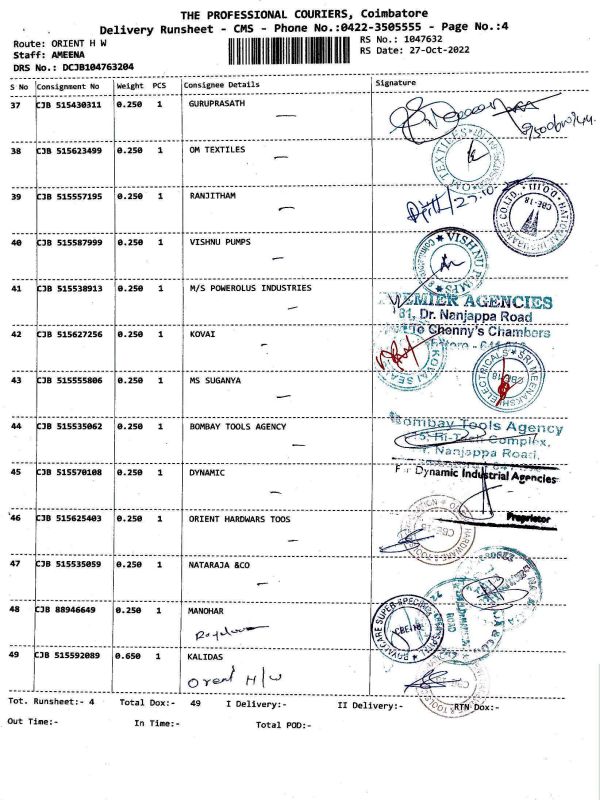 THE PROFESSIONAL COURIERS, Coimbatore
Delivery Runsheet - CMS - Phone No.:0422-3505555 - Page No.:4
Route: ORIENT H W
RS No.: 1047632
Staff: AMEENA
RS Date: 27-Oct-2022
DRS No.: DCJB104763204
S No Consignment No Weight PCS Consignee Details Signature
37 CJB 515430311 0.250 1 GURUPRASATH
38 CJB 515623499 0.250 1 OM TEXTILES
OM TEXTILES
39 CJB 515557195 0.250 1 RANJITHAM
CBE-18
40 CJB 515587999 0.250 1 VISHNU PUMPS
VISHNU PUMPS
41 CJB 515538913 0.250 1 M/S POWEROLUS INDUSTRIES
PREMIER AGENCIES
81, Dr. Nanjappa Road
Chenny's Chambers
42 CJB 515627256 0.250 1 KOVAI
KOVAI SEA
43 CJB 515555806 0.250 1 MS SUGANYA
SRI MEENAKSHI ELECTRICALS
CBE-18
44 CJB 515535062 0.250 1 BOMBAY TOOLS AGENCY
Bombay Tools Agency
15, Hi-Tech Complex,
Nanjappa Road,
45 CJB 515570108 0.250 1 DYNAMIC
For Dynamic Industrial Agencies
Proprietor
46 CJB 515625403 0.250 1 ORIENT HARDWARS TOOS
47 CJB 515535059 0.250 1 NATARAJA &CO
48 CJB 88946649 0.250 1 MANOHAR
ROYALCARE SUPER SPECIALITY HOSPITAL
CBE-18
ROAD
49 CJB 515592089 0.650 1 KALIDAS
Orent H/W
Tot. Runsheet:- 4 Total Dox:- 49 I Delivery:- II Delivery:- RTN Dox:-
Out Time:- In Time:- Total POD:-